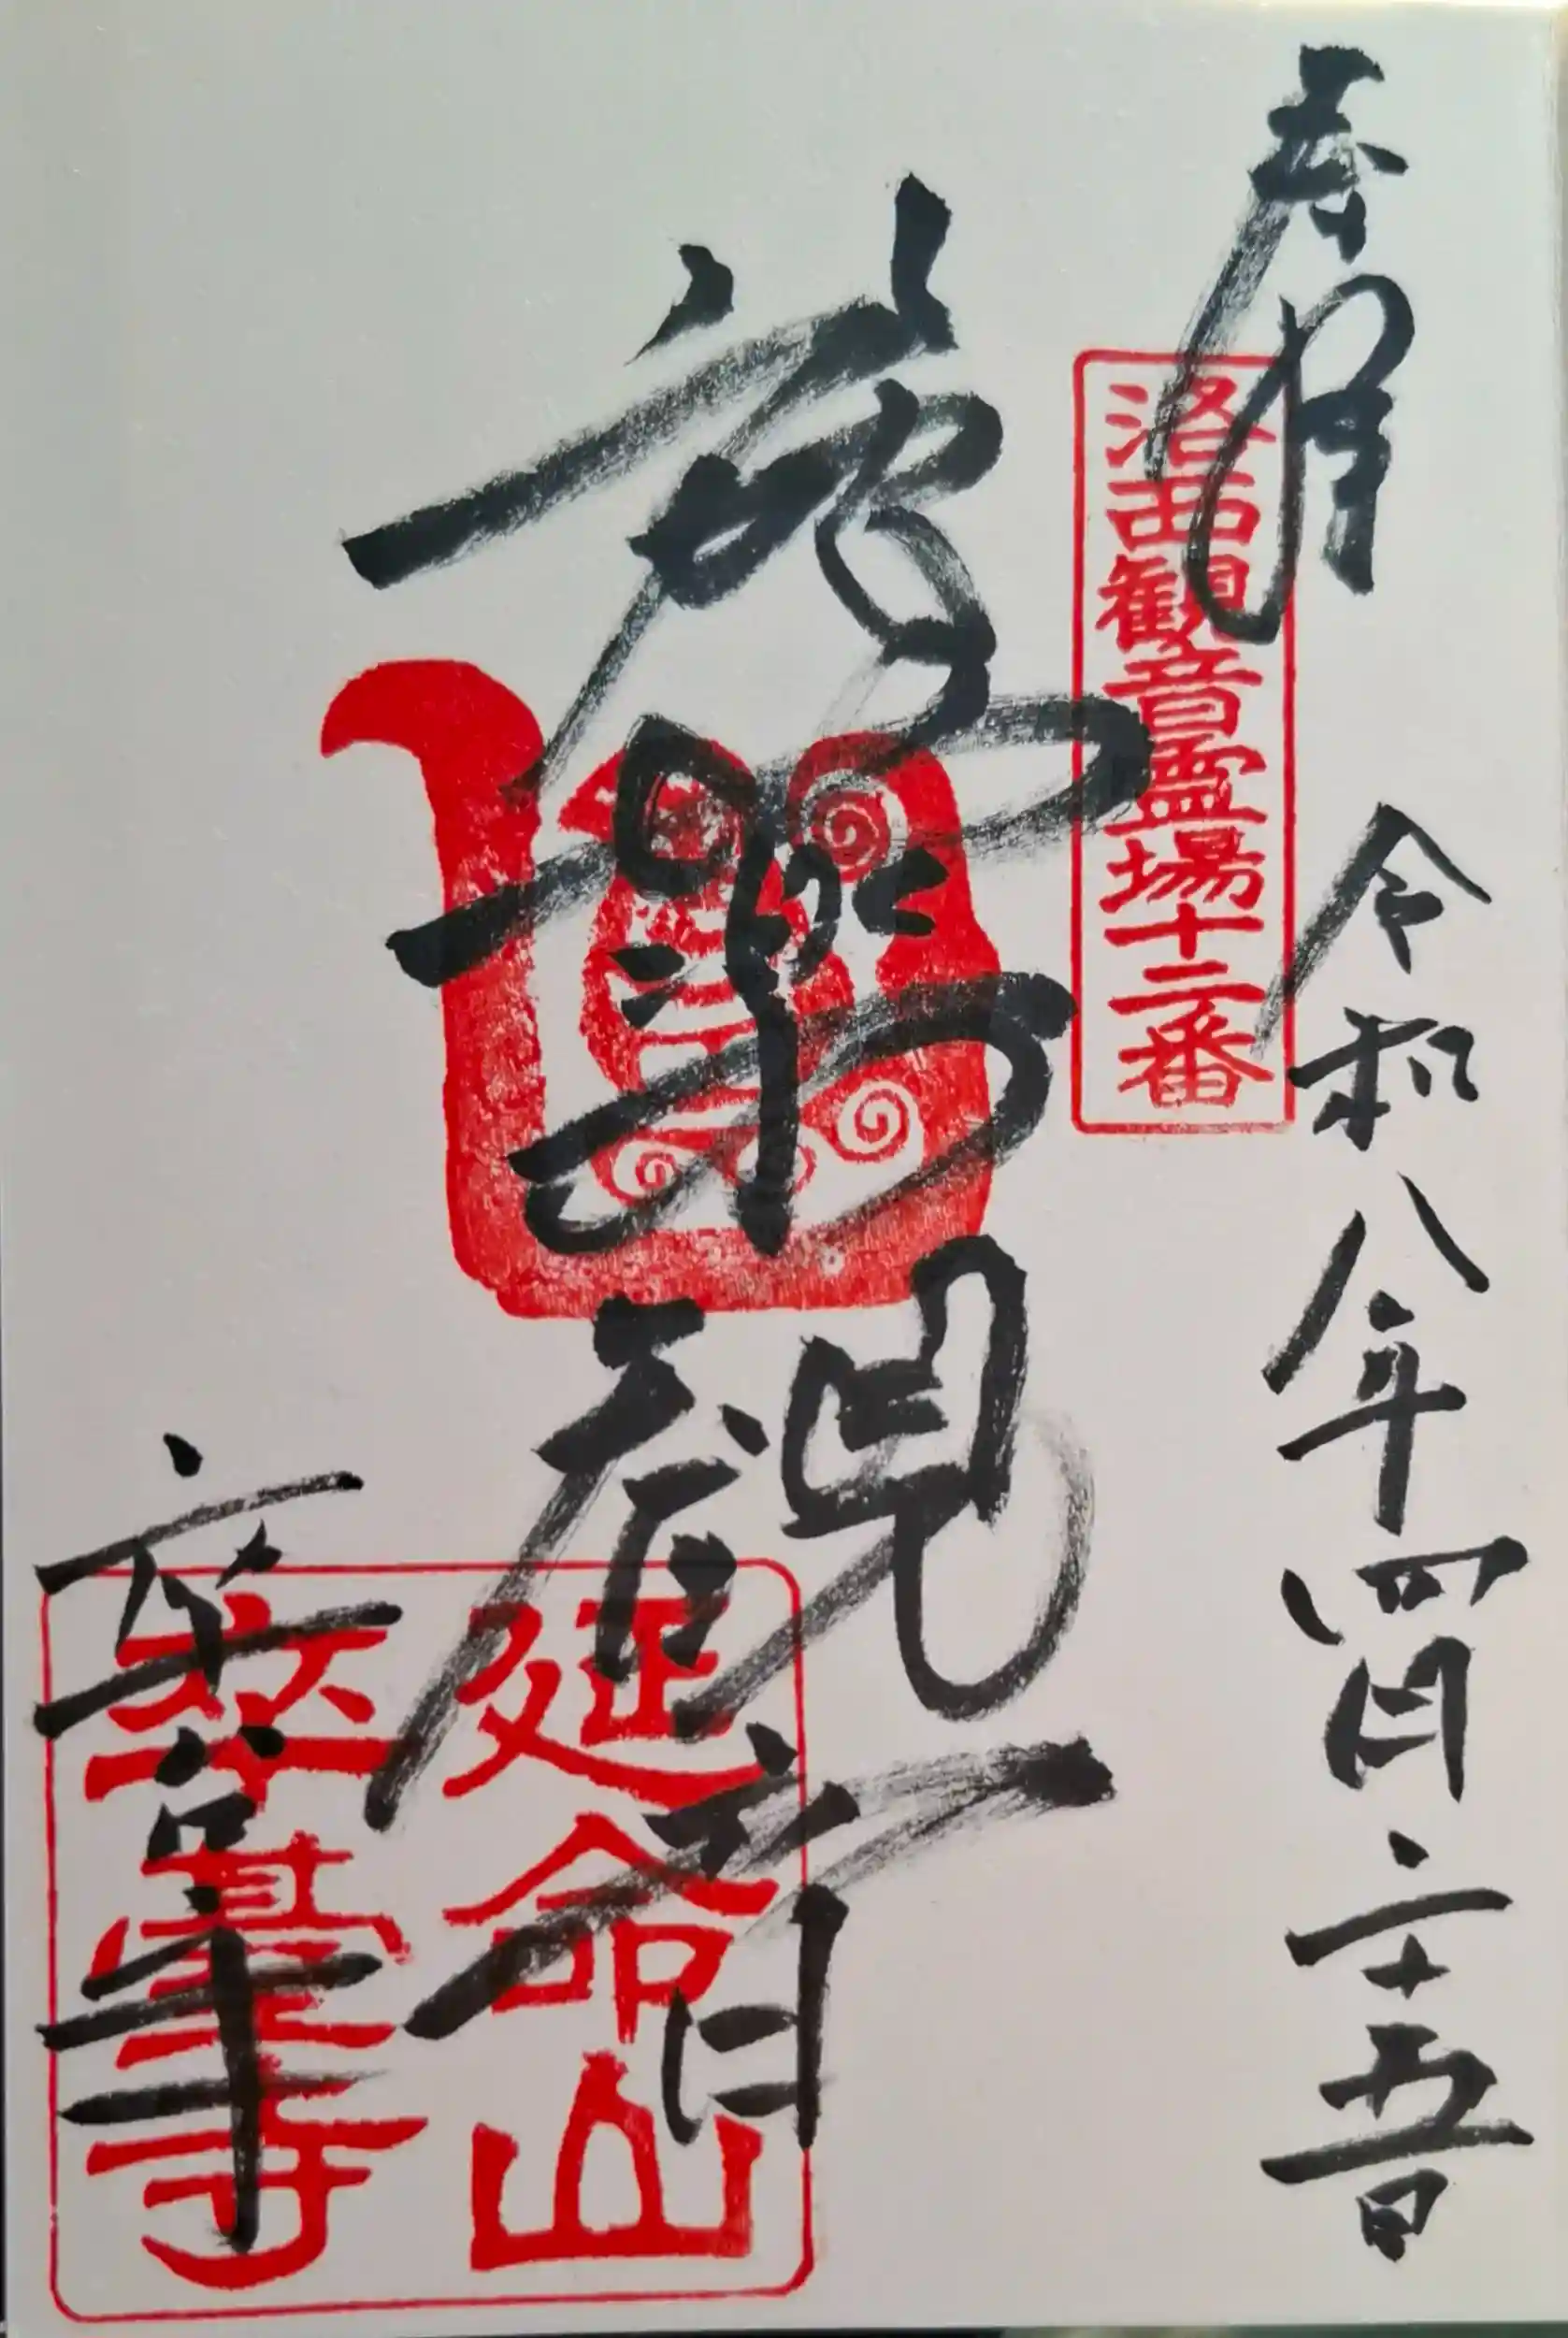 奉拝
令和八年四月二十五日
洛西観音霊場十二番
観音
延命山
卒臺寺
卒台寺